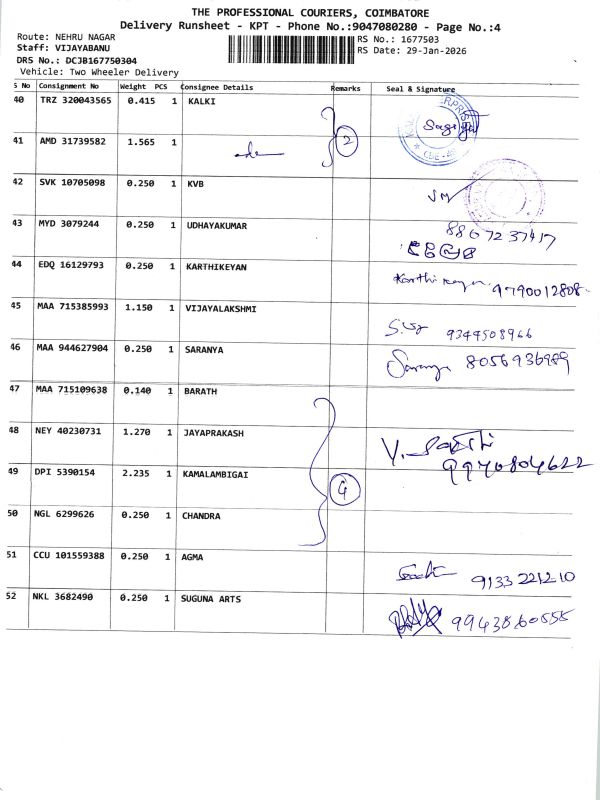 THE PROFESSIONAL COURIERS, COIMBATORE
Delivery Runsheet - KPT - Phone No.:9047080280 - Page No.:4
Route: NEHRU NAGAR
Staff: VIJAYABANU
DRS No.: DCJB167750304
Vehicle: Two Wheeler Delivery
RS No.: 1677503
RS Date: 29-Jan-2026
S No Consignment No Weight PCS Consignee Details Remarks Seal & Signature
40 TRZ 320043565 0.415 1 KALKI
41 AMD 31739582 1.565 1 2
42 SVK 10705098 0.250 1 KVB
43 MYD 3079244 0.250 1 UDHAYAKUMAR 8867237417
44 EDQ 16129793 0.250 1 KARTHIKEYAN Karthikeyan 9790012808
45 MAA 715385993 1.150 1 VIJAYALAKSHMI 9344508966
46 MAA 944627904 0.250 1 SARANYA Saranya 8056936989
47 MAA 715109638 0.140 1 BARATH
48 NEY 40230731 1.270 1 JAYAPRAKASH
49 DPI 5390154 2.235 1 KAMALAMBIGAI 4
50 NGL 6299626 0.250 1 CHANDRA
51 CCU 101559388 0.250 1 AGMA 9133221210
52 NKL 3682490 0.250 1 SUGUNA ARTS 9943860555